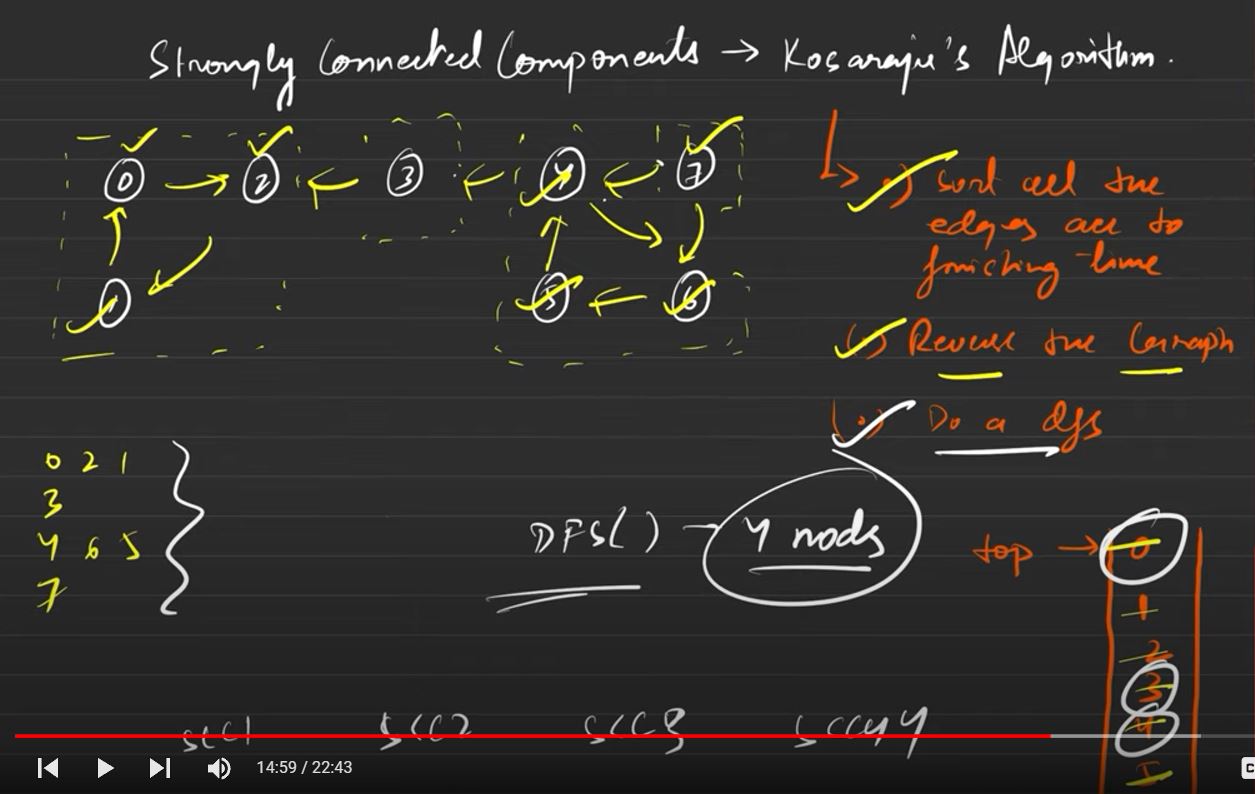 Strongly Connected Components → Kosaraju's Algorithm.
0 → 2 ← 3 ← 4 ← 7
1 5 ← 6
(.) Sort all the
edges acc to
finishing time
(.) Reverse the Graph
(.) Do a dfs
0 2 1
3
4 6 5
7
DFS() - 4 nods
top → 0
1
2
3
4
5
SCC1 SCC2 SCC3 SCC4
14:59 / 22:43